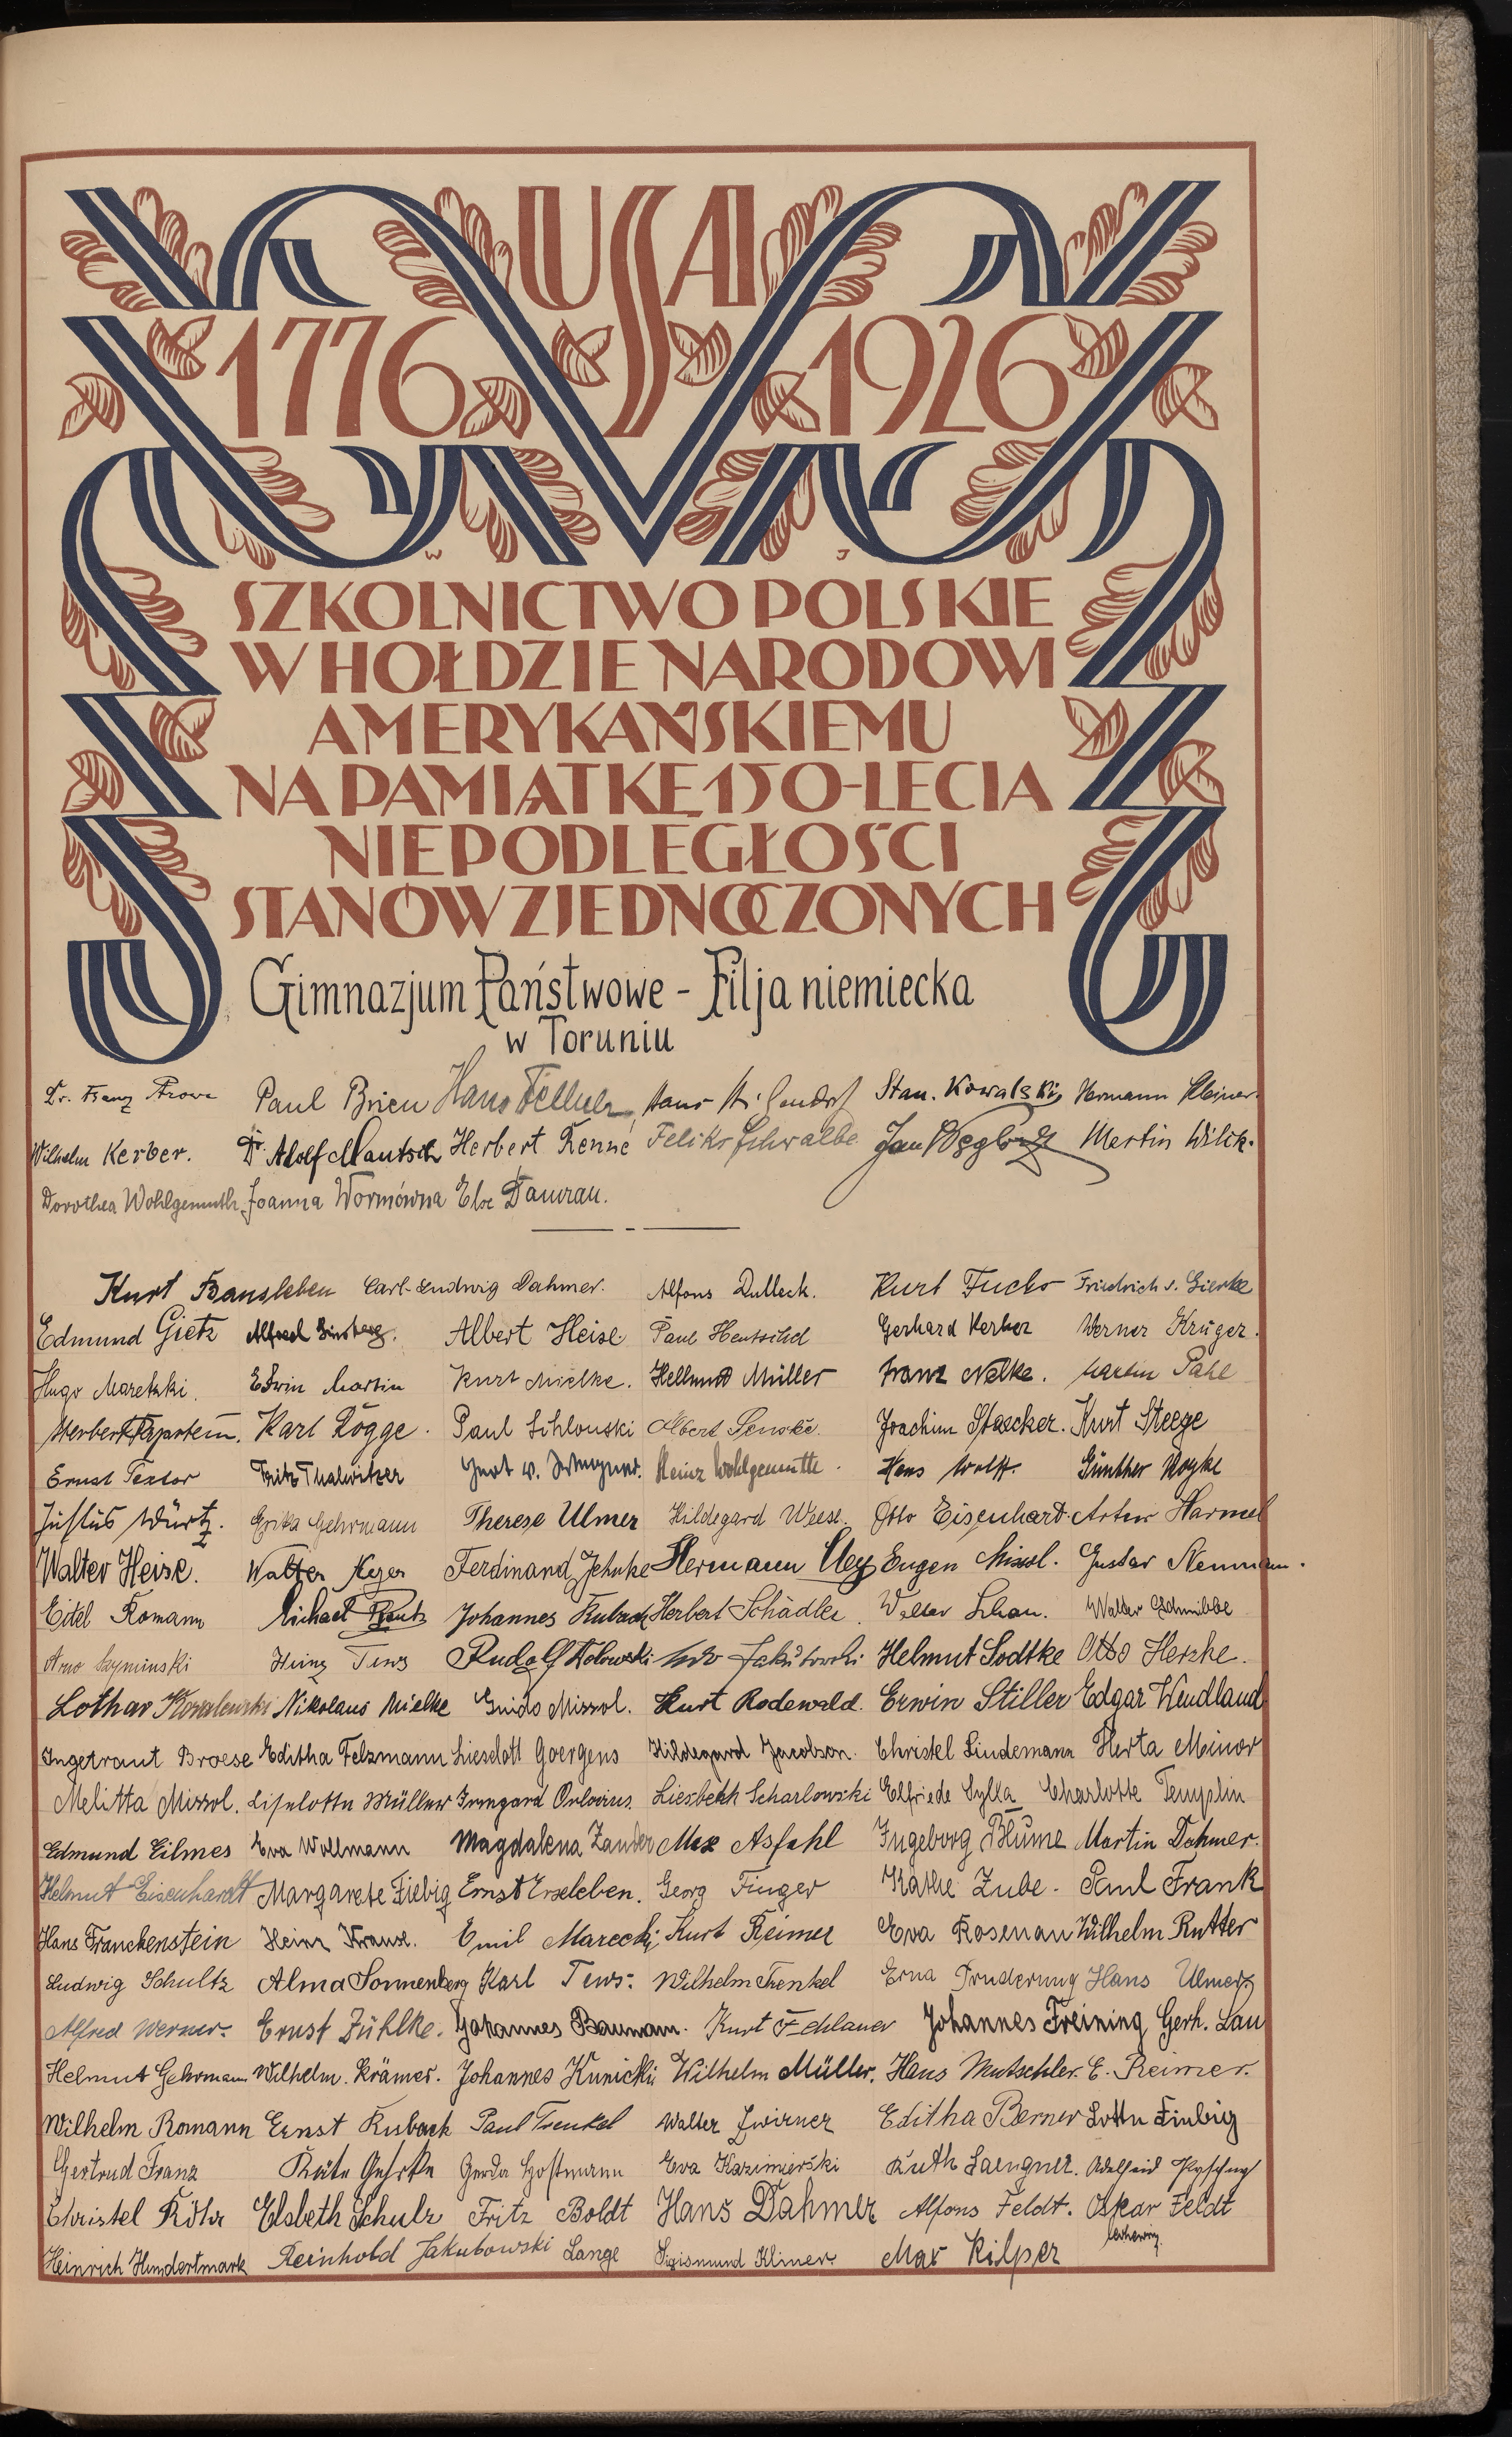 USA
1776 1926
W J
SZKOLNICTWO POLSKIE
W HOŁDZIE NARODOWI
AMERYKAŃSKIEMU
NA PAMIĄTKĘ 150-LECIA
NIEPODLEGŁOŚCI
STANÓW ZJEDNOCZONYCH
Gimnazjum Państwowe - Filja niemiecka
w Toruniu
Dr. Franz Paul Brien Hans Fellner Hans Stan. Kowalski, Hermann Kleiner.
Wilhelm Kerber. Dr. Adolf Mautsch Herbert Renné Feliks Schwalbe Jan Martin Wilck.
Dorothea Wohlgemuth. Joanna Wormówna Else
Kurt Bansleben Carl-Ludwig Dahmer. Alfons Dulleck. Kurt Fuchs Friedrich v. Gierke
Edmund Gietz Alfred Ginsberg. Albert Heise Paul Hentschel Gerhard Kerber Werner Krüger.
Hugo Maretzki. Edwin Martin Kurt Mielke. Hellmut Müller Franz Nelke. Martin Pahl
Herbert Karl Rögge. Paul Schlonski Albert Senske. Joachim Staecker. Kurt Steege
Ernst Textor Fritz Thalwitzer Heinz Wohlgemuth. Hans Wolff. Günther Woyke
Justus Würtz. Erika Gehrmann Therese Ulmer Hildegard Weese. Otto Eisenhardt. Artur Harmel
Walter Heise. Walter Ferdinand Jehnke Hermann Ley Eugen Missol. Gustav Neumann.
Eitel Romann Michael Johannes Kubach Herbert Schädler. Walter Schau. Walter
Arno Szyminski Heinz Tews Rudolf Jakubowski Helmut Sodtke Otto Herzke.
Lothar Kowalewski Nikolaus Mielke Guido Missol. Kurt Rodewald. Erwin Stiller Edgar Windland
Ingetraut Broese Editha Felzmann Lieselott Goergens Hildegard Jacobson. Christel Lindemann Herta Minor
Melitta Missol. Liselotte Müller Irmgard Orlovius. Liesbeth Scharlowski Elfriede Sylla Charlotte Templin
Edmund Eilmes Eva Wollmann Magdalena Zander Max Asfahl Ingeborg Blume Martin Dahmer.
Helmut Eisenhardt Margarete Fiebig Ernst Erxleben. Georg Finger Käthe Zube. Paul Frank
Hans Franckenstein Heinz Krause. Emil Marecki, Kurt Reimer Eva Rosenau Wilhelm Rutter
Ludwig Schultz Alma Sonnenberg Karl Tews. Wilhelm Trenkel Erna Hans Ulmer.
Alfred Werner. Ernst Zühlke. Johannes Baumann. Kurt Fehlauer Johannes Freining Gerh. Lau
Helmut Gehrmann Wilhelm. Krämer. Johannes Kunicki Wilhelm Müller. Hans Mutschler. E. Reimer.
Wilhelm Romann Ernst Kubach Paul Trenkel Walter Zwirner Editha Berner Lotte Fiebig
Gertrud Franz Käte Gehrke Gerda Hoffmann Eva Kazimierski Ruth Laengner. Adelheid
Christel Röhr Elsbeth Schulz Fritz Boldt Hans Dahmer Alfons Feldt. Oskar Feldt
Heinrich Hundertmark Reinhold Jakubowski Lange Sigismund Klimer. Max Kilper